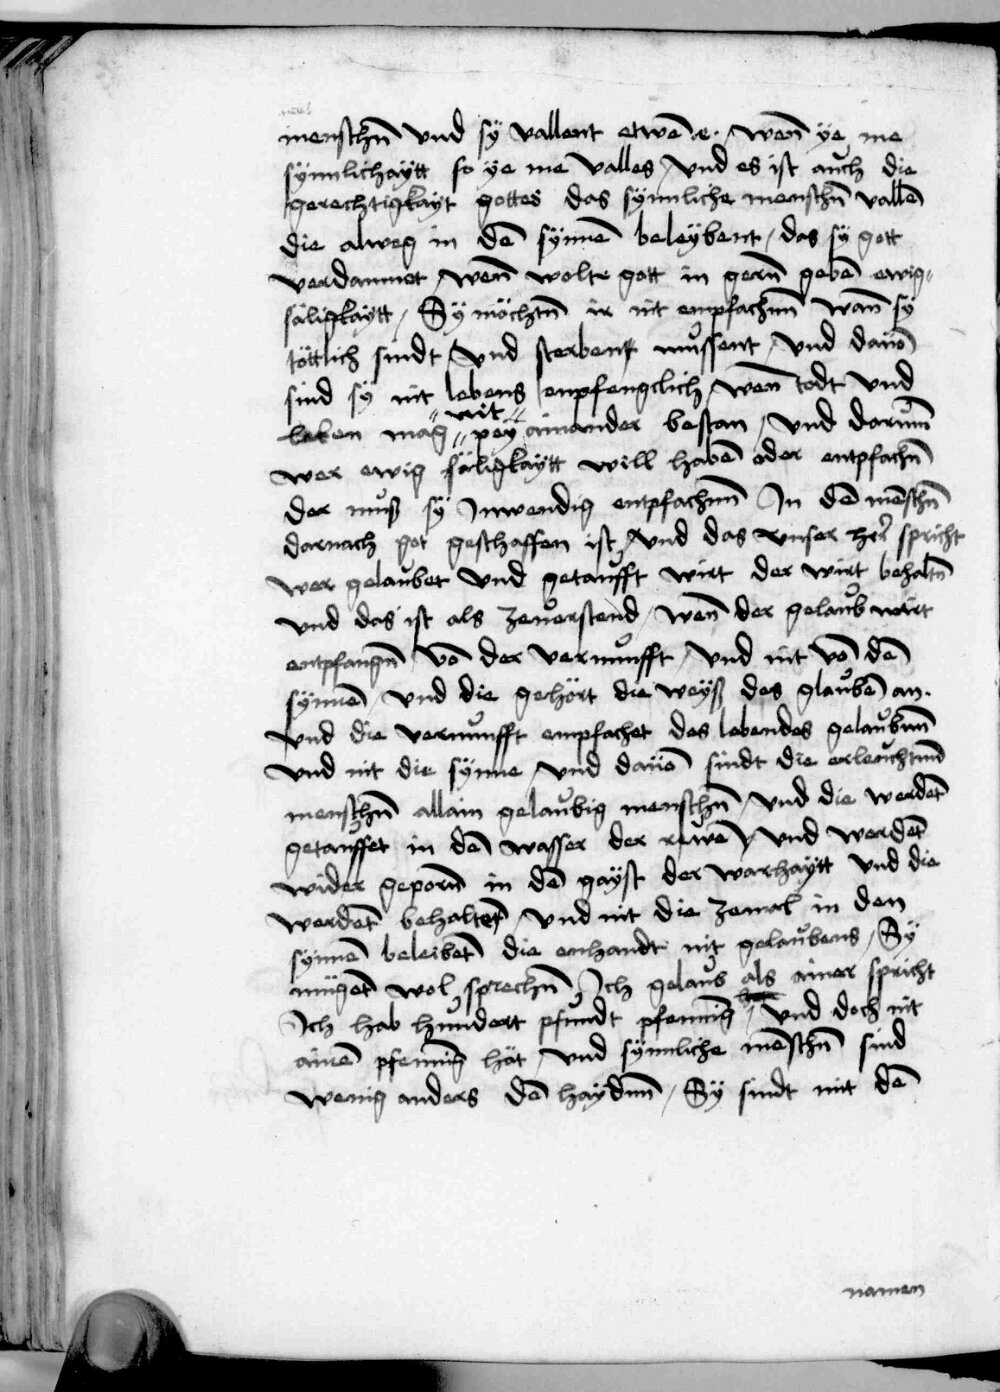 menschn̄ vnd sÿ vallent etwēͤ. wen̄ ye me
synnlichaytt so ye me valles / vnd es ist aůch die
gerechtigkayt gottes das synnliche menschn̄ vallē
die alweg in dē synnē beleybent / das sÿ gott
verdammet / wen̄ wolte gott in gern̄ gebē ewig=
säligkaytt / Sÿ möchtn̄ ir nit empfachnn̄ wan̄ sy
töttlich sindt / vnd sterbent můssent / vnd dauō
sind sy nit lebens enpfengclich / wen̄ todt vnd
"nit"
leben mag "peÿ ainander bestan / vnd dorům̄
wer ewig säligkaytt will habē oder entpfachn̄
der můß sÿ Inwendig entpfachnn̄ In dē mēschn̄
darnach got geschaffen ist / vnd das vnser her̄ spricht
wer gelaůbet vnd getaůfft wirt der wirt behaltn̄
vnd das ist als zeůerstend / wen̄ der gelaůb wirt
entpfangn̄ vō der vernůnfft / vnd nit vō dē
synnē / vnd die gehört die weyß des glaůbē an.
vnd die vernůnfft empfachet des lebendes gelaůbnn̄
vnd nit die synne / vnd dauō sindt die erleůchtnn̄
menschn̄ allain gelaůbig menschn̄ / vnd die werdēt
getaůffet in dē wasser der rewē / vnd werdēt
wider geporn̄ in dē gayst der warhaytt vnd die
werdēt behaltēt / vnd nit die zemal in den
synnē beleibēt die enhandt nit gelaůbens / Sÿ
mügēt wol sprechn̄ Ich gelaůb als ainer spricht
Ich hab hůndert pfůndt pfennig / vnd doch nit
ainē pfennig hät / vnd synnliche mēschn̄ sind
wenig anders dē haydnn̄ / Sÿ sindt mit dē
namen